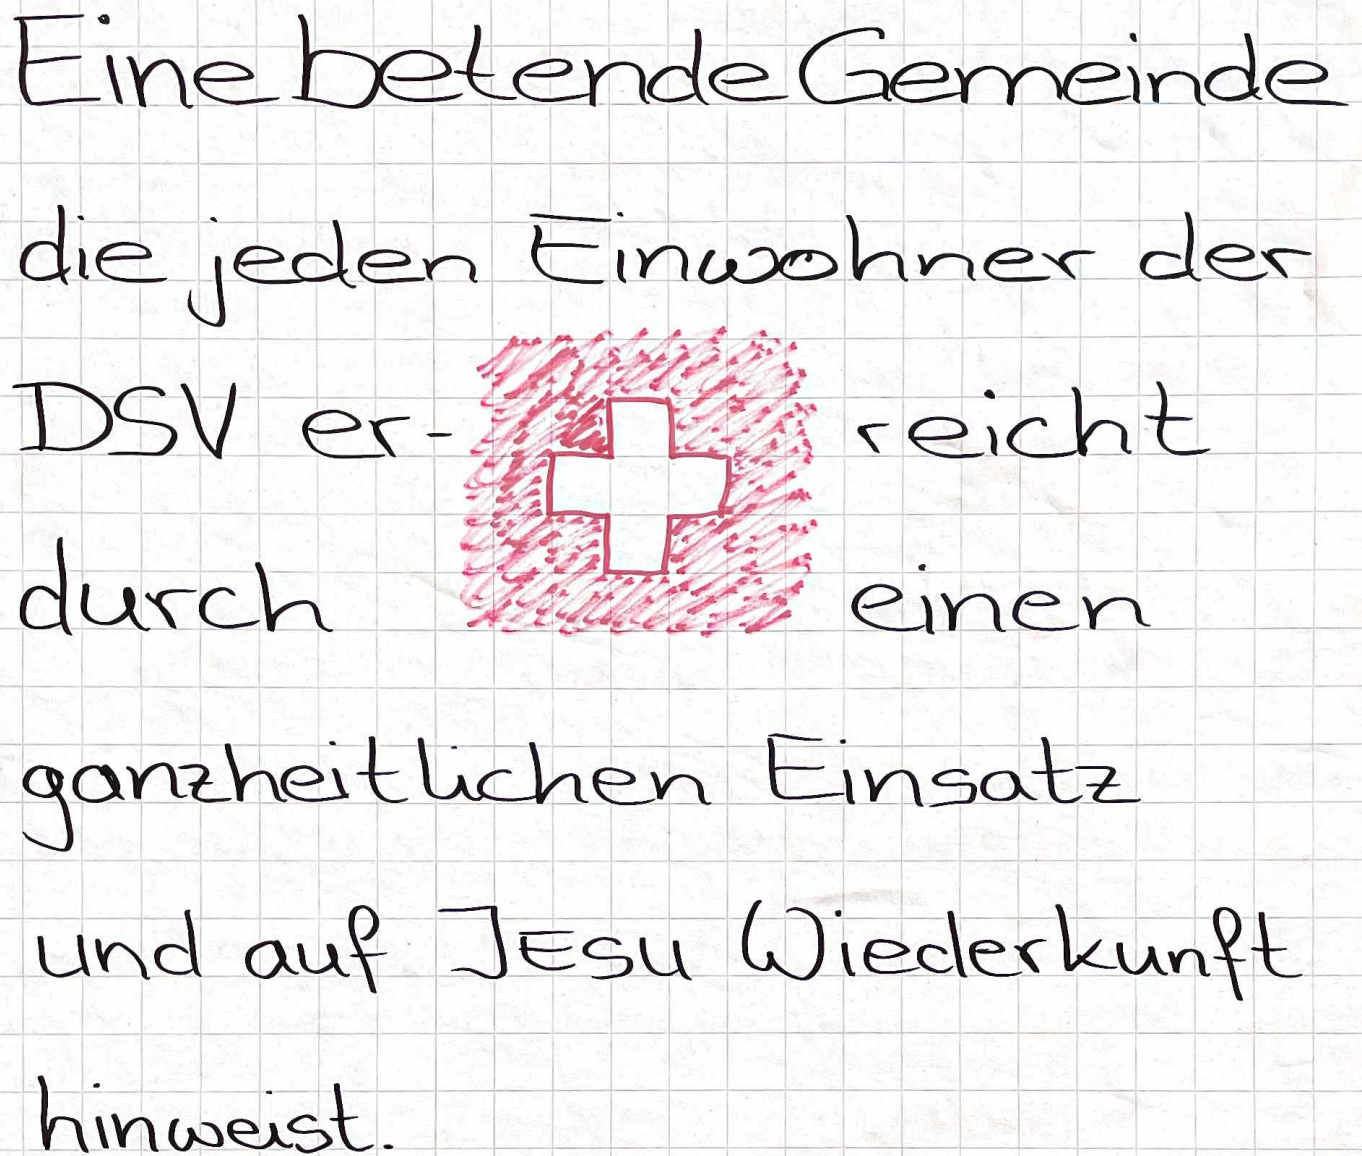 Eine betende Gemeinde
die jeden Einwohner der
DSV er- reicht
durch einen
ganzheitlichen Einsatz
und auf JESU Wiederkunft
hinweist.